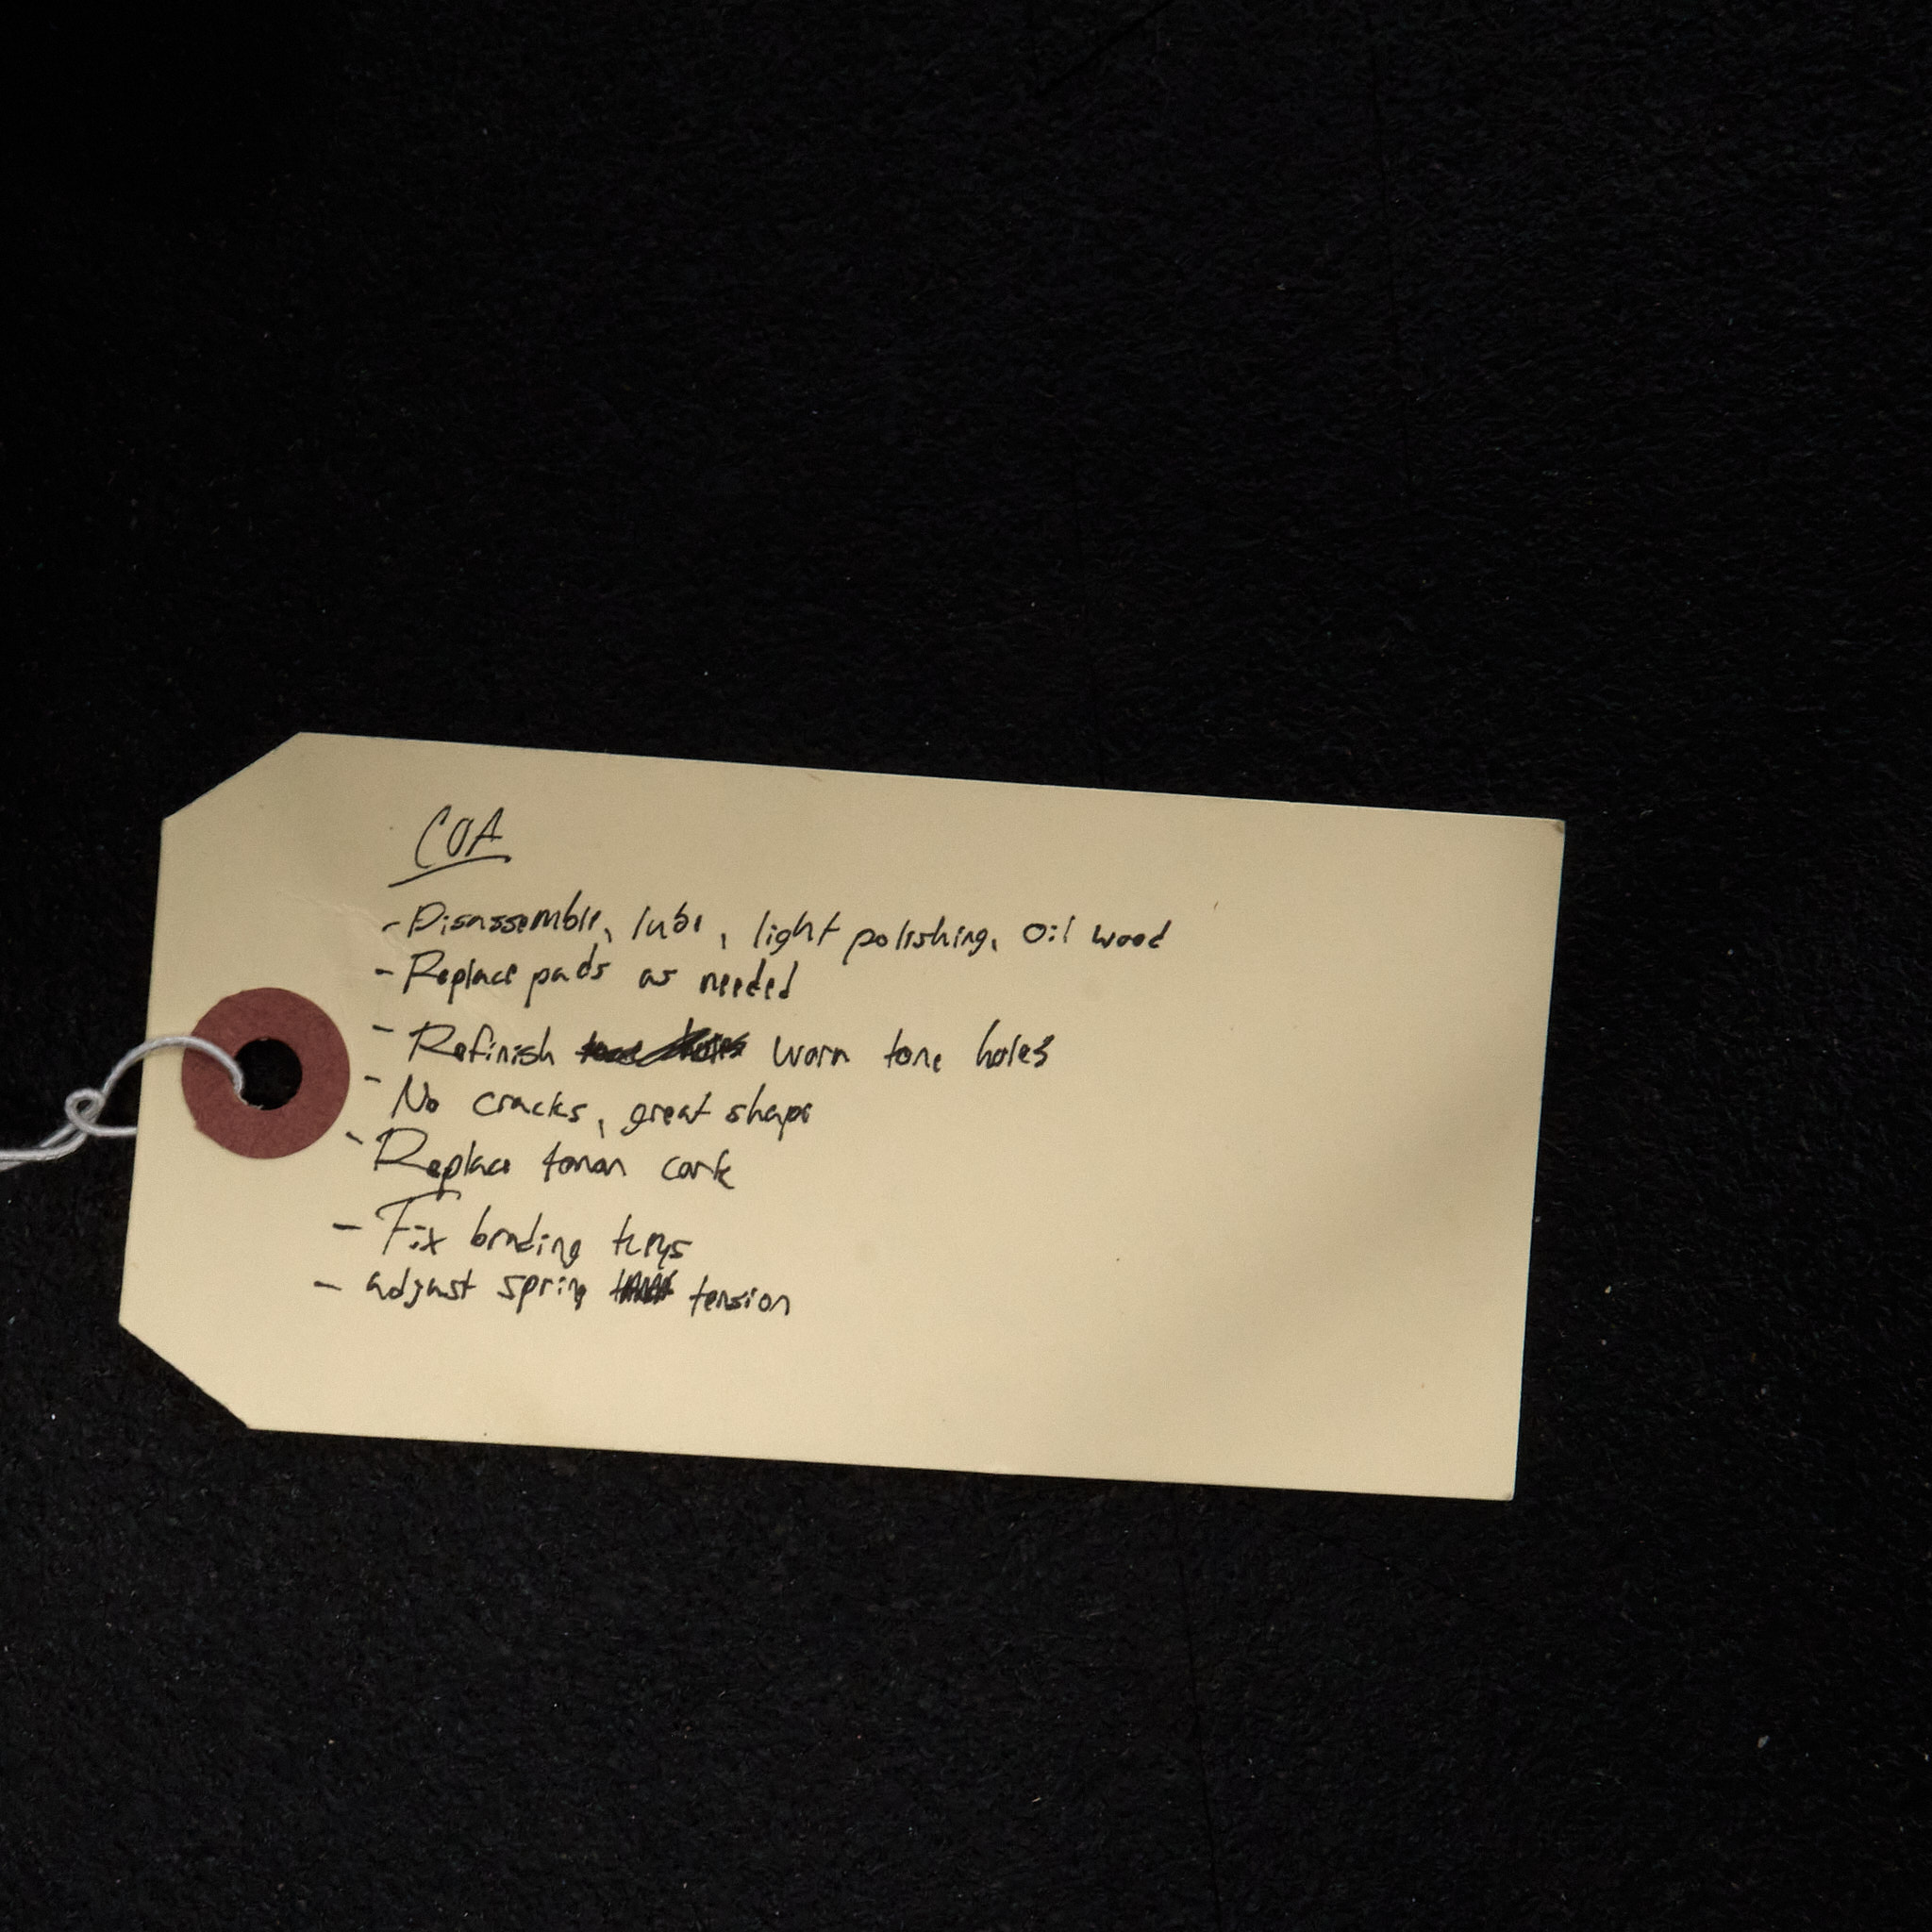 COA
- Disassemble, lube, light polishing, oil wood
- Replace pads as needed
- Refinish worn tone holes
- No cracks, great shape
- Replace tenon cork
- Fix binding keys
- adjust spring tension